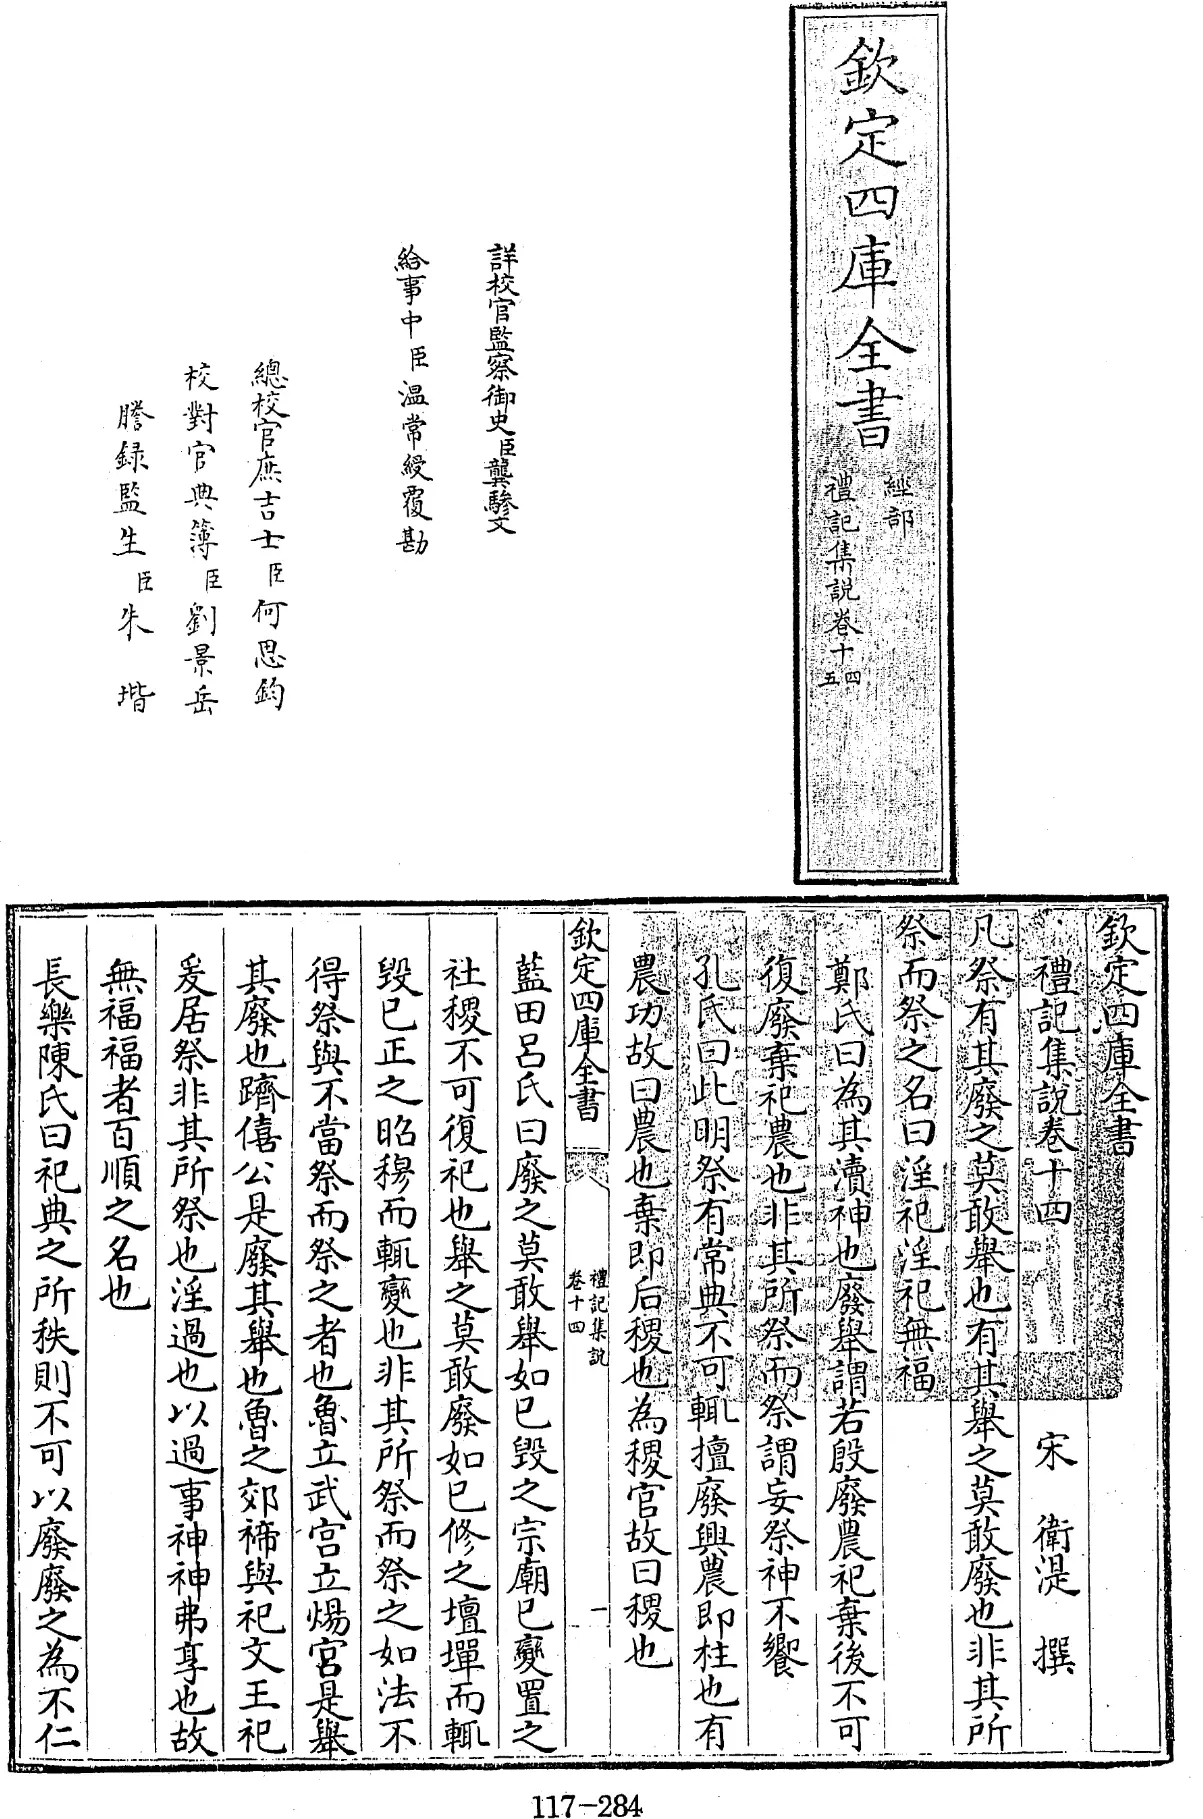 欽定四庫全書
經部
禮記集說卷十四
五
詳校官監察御史臣龔驂文
給事中臣温常綬覆勘
總校官庶吉士臣何思鈞
校對官典簿臣劉景岳
謄録監生臣朱堦
欽定四庫全書
禮記集說卷十四 宋 衛湜 撰
凡祭有其廢之莫敢舉也有其舉之莫敢廢也非其所
祭而祭之名曰淫祀淫祀無福
鄭氏曰為其瀆神也廢舉謂若殷廢農祀棄後不可
復廢棄祀農也非其所祭而祭謂妄祭神不饗
孔氏曰此明祭有常典不可輒擅廢興農即柱也有
農功故曰農也棄即后稷也為稷官故曰稷也
欽定四庫全書
禮記集說
卷十四
一
藍田呂氏曰廢之莫敢舉如已毀之宗廟已變置之
社稷不可復祀也舉之莫敢廢如已修之壇墠而輒
毀已正之昭穆而輒變也非其所祭而祭之如法不
得祭與不當祭而祭之者也魯立武宫立煬宫是舉
其廢也躋僖公是廢其舉也魯之郊禘與祀文王祀
爰居祭非其所祭也淫過也以過事神神弗享也故
無福福者百順之名也
長樂陳氏曰祀典之所秩則不可以廢廢之為不仁
117-284